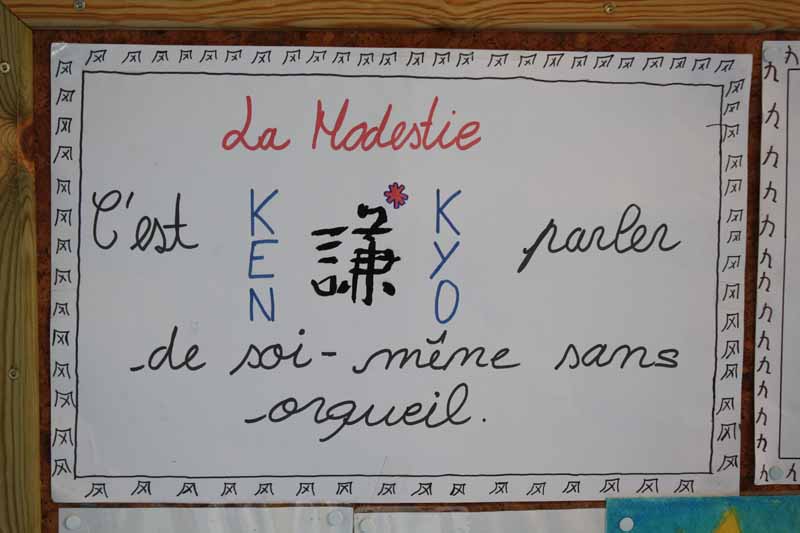 La Modestie
C'est KEN 謙 KYO parler
de soi-même sans
orgueil.